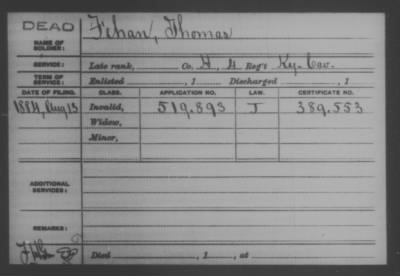 DEAD
Fehan, Thomas
NAME OF SOLDIER:
SERVICE: Late rank, Co. H, 4 Reg't Ky. Cav.
TERM OF SERVICE: Enlisted , 1 Discharged , 1
DATE OF FILING. CLASS. APPLICATION NO. LAW. CERTIFICATE NO.
1884, Aug 13 Invalid, 519.893 J 389.553
Widow,
Minor,
ADDITIONAL SERVICES:
REMARKS:
Died , 1 , at